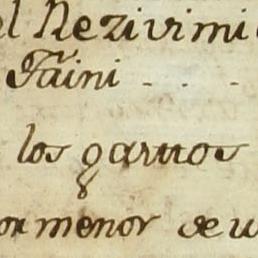 el Rezivimi
Faini - - -
los garuos
or menor de u